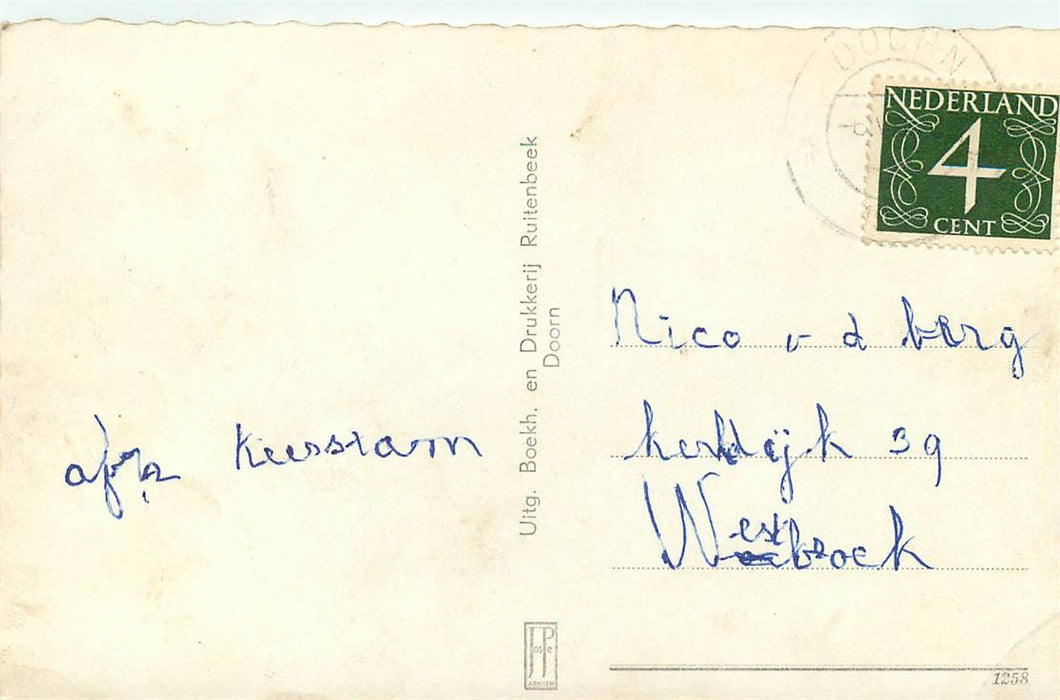 DOORN
NEDERLAND
4
CENT
Uitg. Boekh. en Drukkerij Ruitenbeek
Doorn
Nico v d berg
kerkdijk 39
Westbroek
afz
JosPe
ARNHEM
1258